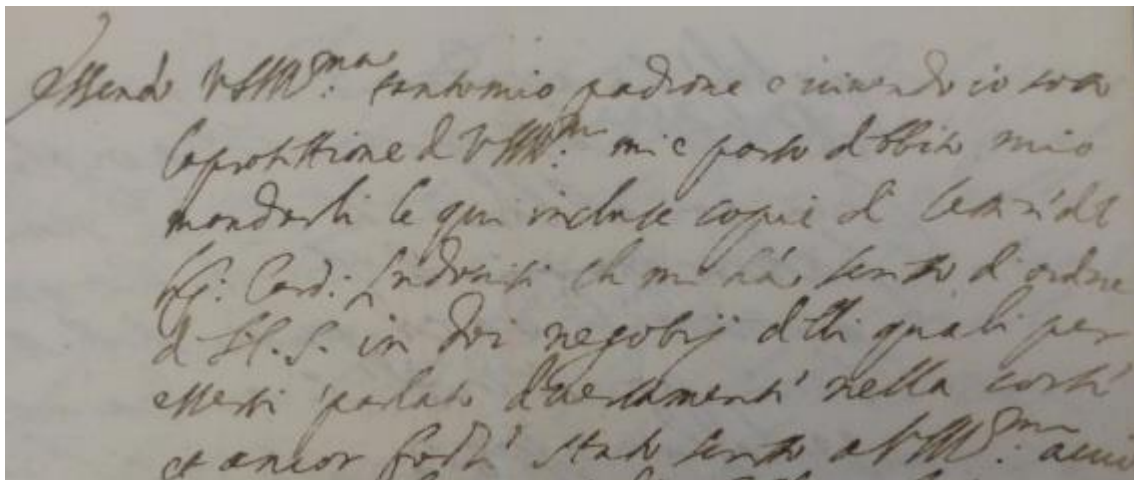 Essendo V.S.Ill.ma tanto mio padrone e vivendo io sotto
la protettione di V.S.Ill.ma mi è parso debbito mio
mandarli le qui incluse copie di lettere del
Sig. Card. che mi hà scritto di ordine
di N. S. in doi negotij delli quali per
essersi parlato diversamente nella corte
et ancor forsi stato scritto a V.S.Ill.ma